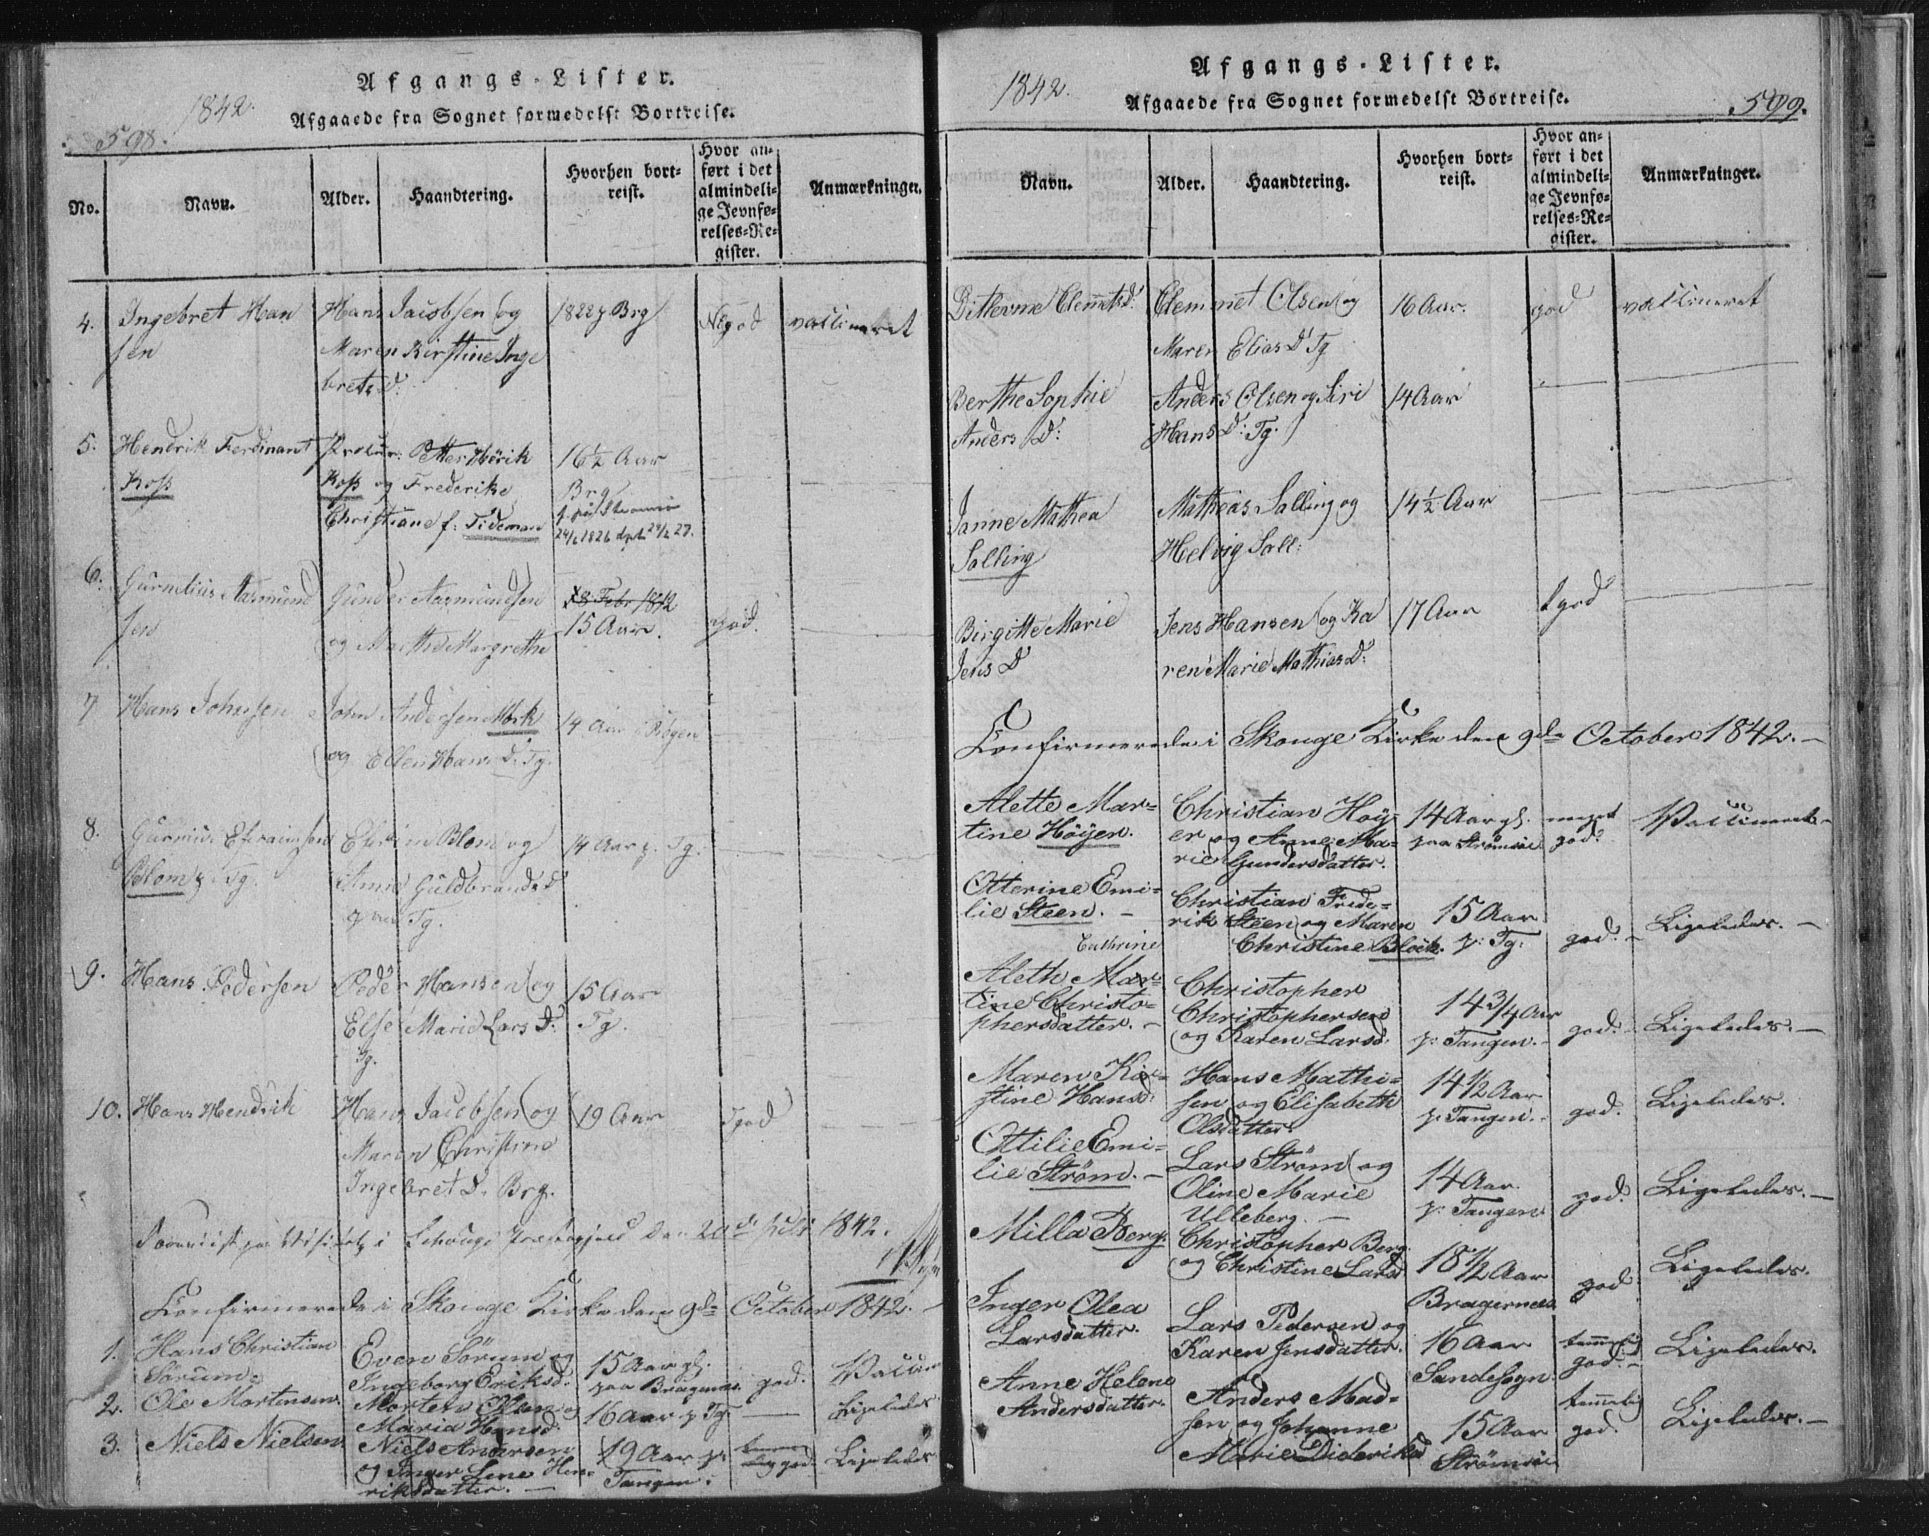 598.
1842.
Afgangs-Lister.
Afgaaede fra Sognet formedelst Bortreise.
No.
Navn.
Alder.
Haandtering.
Hvorhen bort-
reist.
Hvor an-
ført i det
almindeli-
ge Jevnfø-
relses-Re-
gister.
Anmærkninger.
4.
Ingebret Han
sen
Hans Jacobsen og
Maren Kirstine Inge
brets D.
1822 Brg
god
vaccineret
5.
Hendrik Ferdinant
Koss
Procur: Petter Hörik
Koss og Frederike
Christiane f: Tideman
16½ Aar
Brg
6.
Gurnelius Aasmund
sen
Gunder Aasmundsen
og Marthe Margrethe
18 Febr 1812
15 Aar.
god.
7
Hans Johnsen
John Andersen Mork
og Ellen Hans D. Tg.
14 Aar
8.
Efraimsen
Blom p. Tg.
Blom og
Guldbrands d
Tg.
14 Aar p. Tg.
9.
Hans Pedersen
Peder Hansen og
Else Marie Lars D:
Tg.
15 Aar
Tg.
10.
Hans Hendrik
Hans Jacobsen og
Maren Christine
Ingebret D. Brg.
19 Aar
god
1842.
Confirmerede i Skouge Kirke den 9de October 1842.
1.
Hans Christian
Sörum.
Even Sörum og
Ingeborg Eriksd.
15 Aar gl.
paa Bragernes.
god.
Vaccin
2.
Ole Mortensen
Morten Olsen og
Maria Hansd.
16 Aar p. Tg.
Ligeledes
3.
Niels Nielsen
Niels Andersen
og Inger Lene Hen-
riksdatter.
19 Aar p:
Tangen.
god
Ligeledes
1842.
Afgangs-Lister.
Afgaaede fra Sognet formedelst Bortreise.
599.
Navn.
Alder.
Haandtering.
Hvorhen bort-
reist.
Hvor an-
ført i det
almindeli-
ge Jevnfø-
relses-Re-
gister.
Anmærkninger.
Clemmet Olsen og
Maren Elias D Tg
16 Aar.
god
vaccineret
Berthe Sophie
Anders D:
Anders Olsen og Siri
Hans D: Tg.
14 Aar
Janne Mathea
Salling
Mathias Salling og
Helvig Sall:
14½ Aar
Birgitte Marie
Jens D
Jens Hansen og Ka
ren Marie Mathias D:
17 Aar
god
Confirmerede i Skouge Kirke den 9de October 1842.
Alette Mar=
tine Höyer.
Christian Höy
er og Anne Ma-
rie Gundersdatter.
14 Aar gl.
paa Strömsöe
meget
god.
Vaccineret
Otterine Emi-
lie Steen.
Christian Frede-
rik Steen og Maren
Christine Block.
15 Aar
p: Tg:
god.
Ligeledes.
Cathrine
Aleth Mar-
tine Christo-
phersdatter.
Christopher
Christophersen
og Karen Larsd.
14 3/4 Aar
p: Tangen.
god.
Ligeledes.
Maren Kir-
stine Hansd.
Hans Mathi-
sen og Elisabeth
Olsdatter.
14½ Aar
p: Tangen.
god.
Ligeledes.
Ottilie Emi-
lie Ström.
Lars Ström og
Oline Marie
Ulleberg.
14 Aar.
p: Tangen
god.
Ligeledes.
Milla Berg.
Christopher Berg
og Christine Larsd
18½ Aar
Bragernes
god
Ligeledes.
Inger Olea
Larsdatter.
Lars Pedersen og
Karen Jensdatter.
16 Aar
Sande Sogn
temmelig
god.
Ligeledes.
Anne Helene
Andersdatter.
Anders Mad-
sen og Johanne
Marie Dideriksd
15 Aar
Strömsöe
temmelig
god.
Ligeledes.